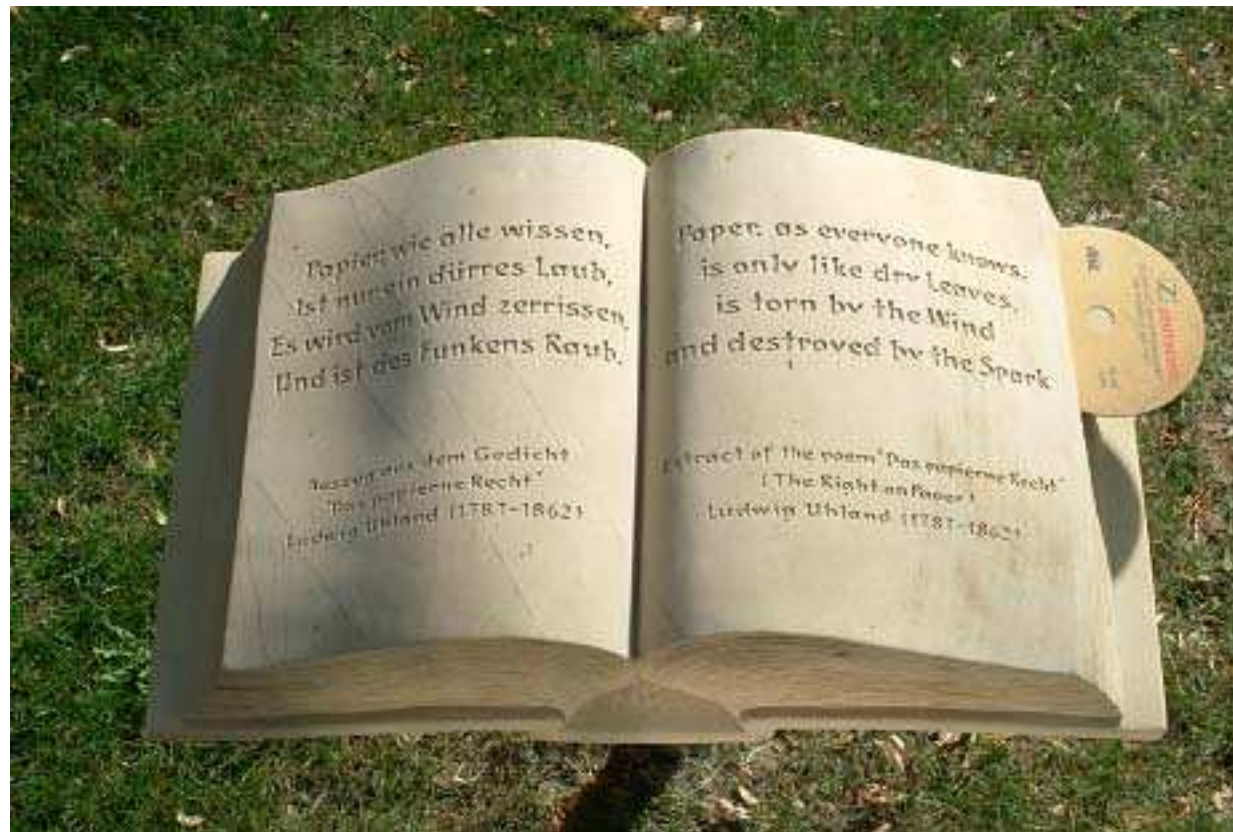 Papier, wie alle wissen,
Ist nur ein dürres Laub,
Es wird vom Wind zerrissen,
Und ist des Funkens Raub.
Auszug aus dem Gedicht
"Das papierne Recht"
Ludwig Uhland (1787-1862)
Paper, as everyone knows,
is only like dry Leaves,
is torn by the Wind
and destroyed by the Spark
Extract of the poem "Das papierne Recht"
(The Right on Paper)
Ludwig Uhland (1787-1862)